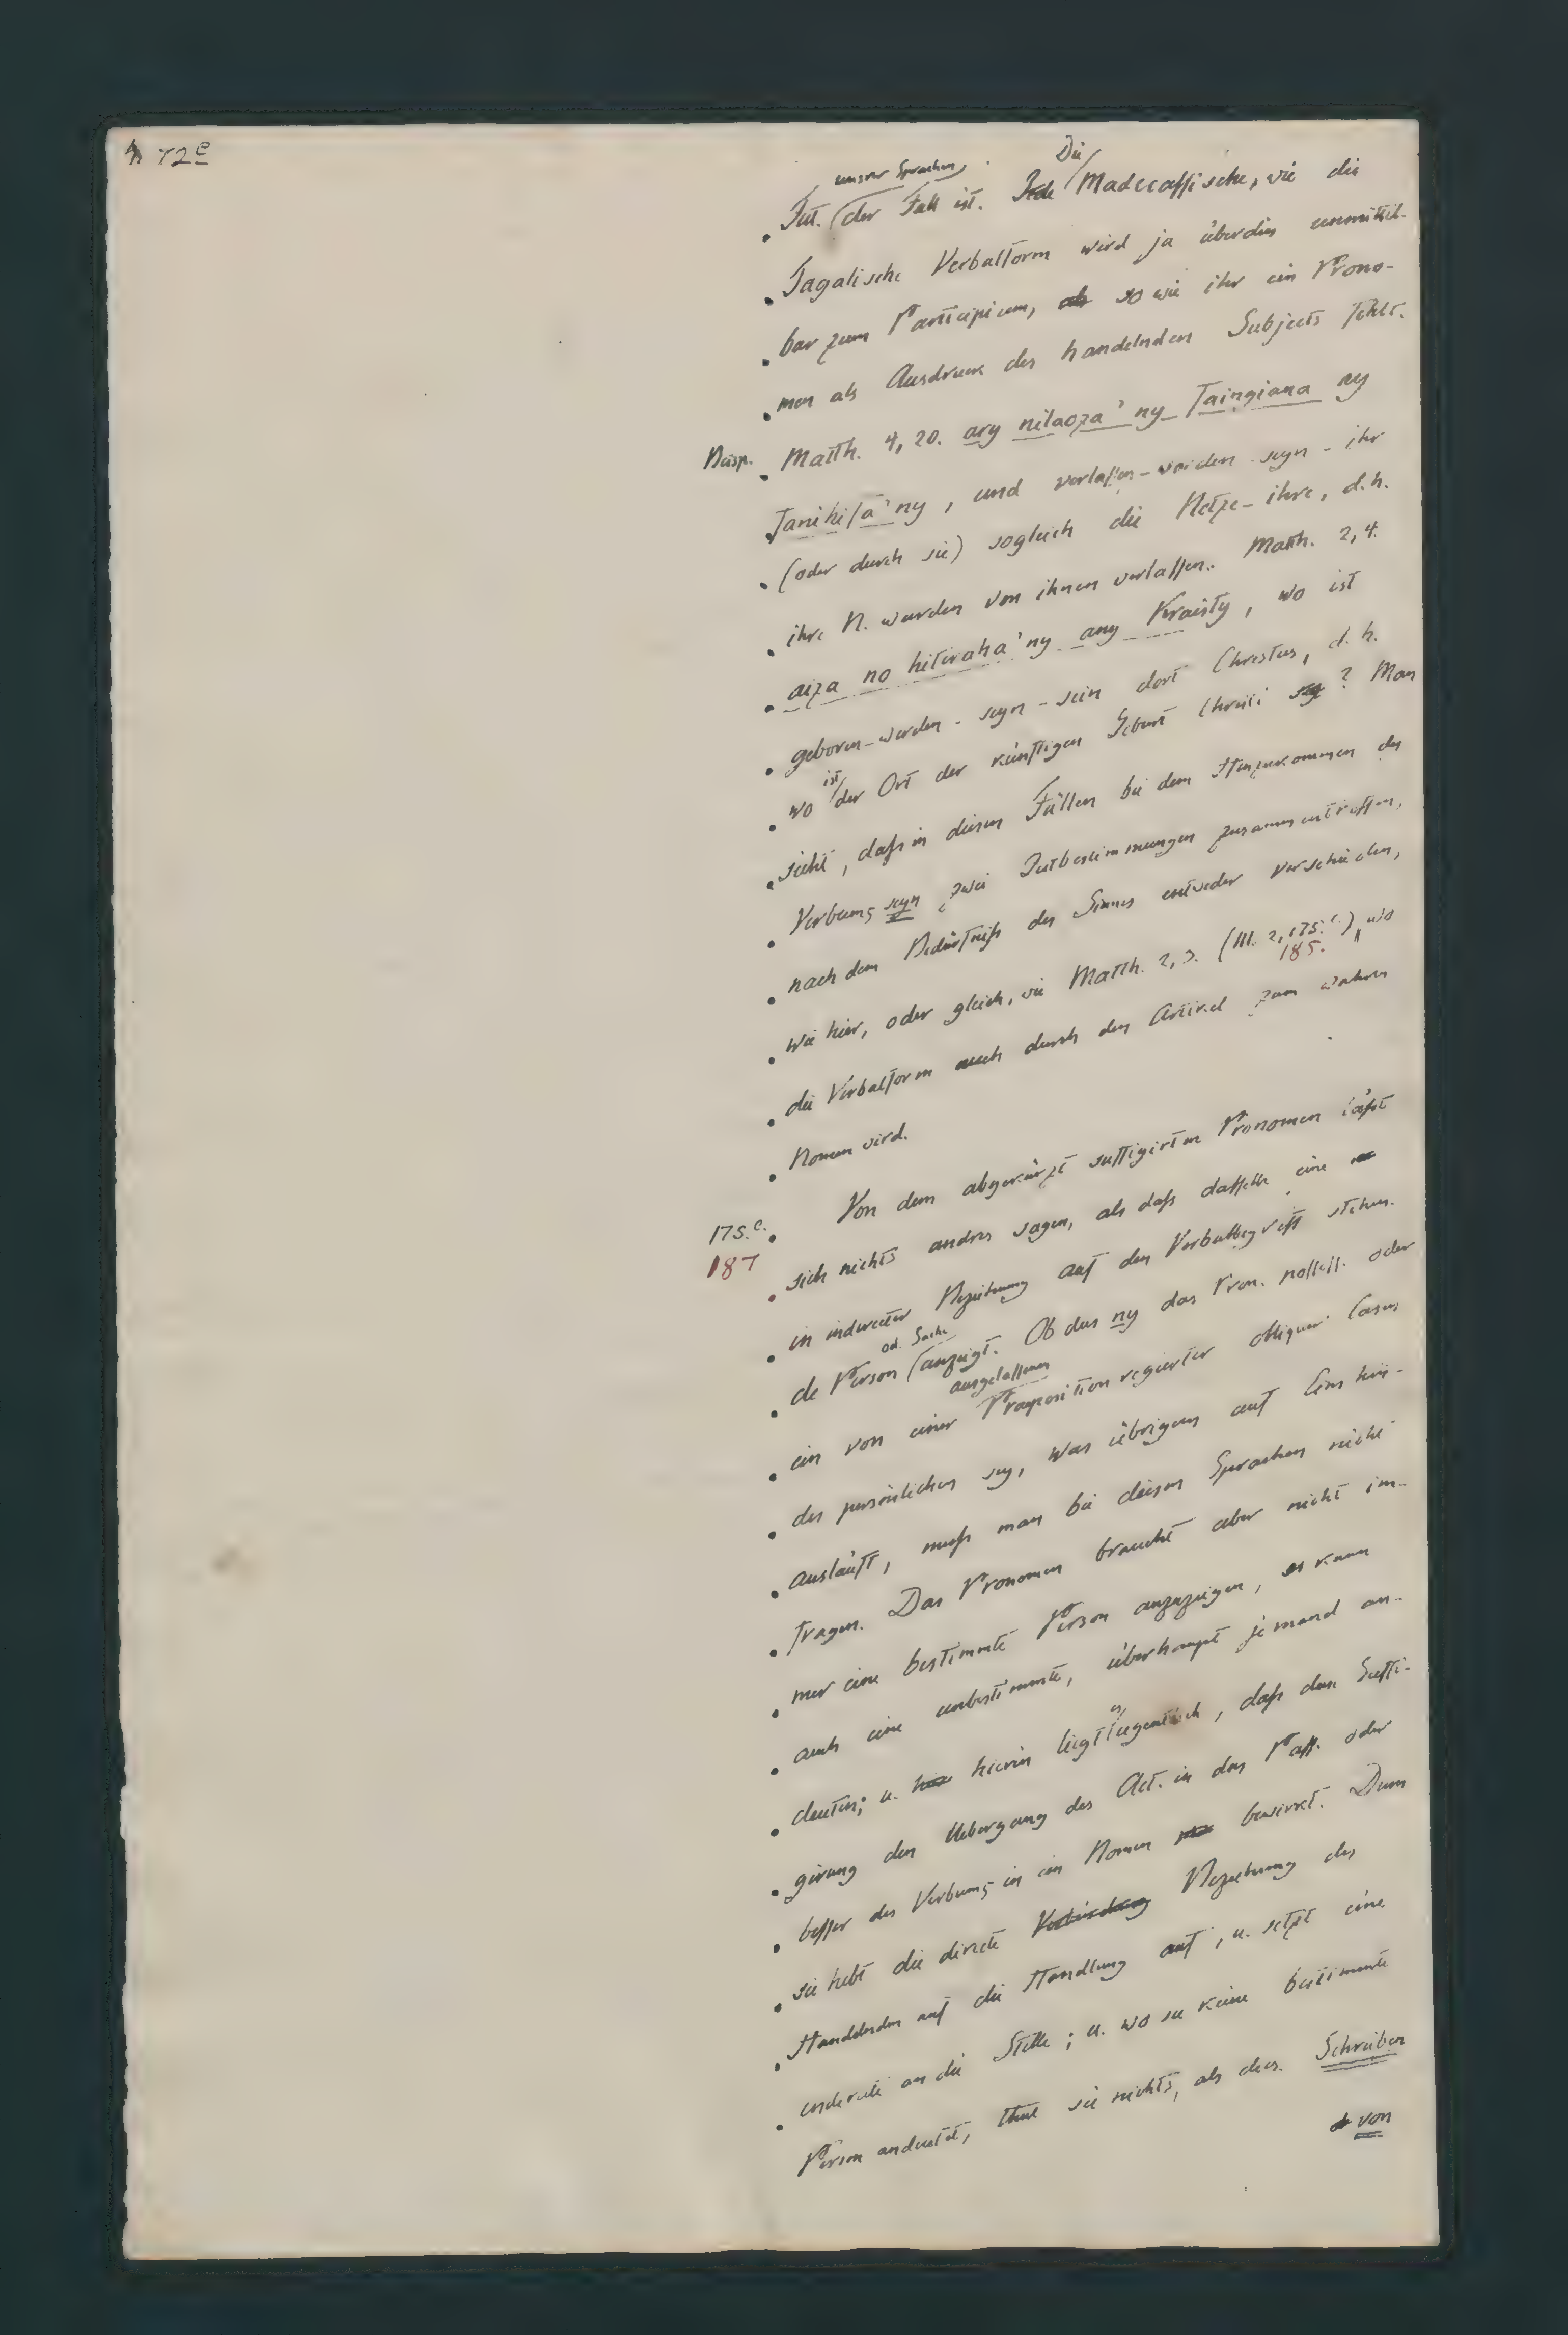 72e
unsrer Sprachen
Fut. der Fall ist. Jede Die Madecassische, wie die
Tagalische Verbalform wird ja überdies unmittel-
bar zum Participium, als so wie ihr ein Prono-
men als Ausdruck des handelnden Subjects fehlt.
Beisp. Matth. 4, 20. ary nilaoza' ny Taingiana ny
Tanikifa' ny, und verlassen-worden-seyn-ihr
(oder durch sie) sogleich die Netze-ihre, d.h.
ihre N. wurden von ihnen verlassen. Matth. 2, 4.
aiza no hiteraha' ny any Kraisty, wo ist
geboren-werden-seyn-sein dort Christus, d. h.
wo ist der Ort der künftigen Geburt Christi sey? Man
sieht, daß in diesen Fällen bei dem Hinzukommen des
Verbums seyn zwei Zeitbestimmungen zusammentreffen,
nach dem Bedürfniß des Sinnes entweder verschieden,
wie hier, oder gleich, wie Matth. 2, 3. (III. 2, 175. c.), wo
185.
die Verbalform auch durch den Artikel zum wahren
Nomen wird.
175. c. Von dem abgekürzt suffigirten Pronomen läßt
187 sich nichts andres sagen, als daß dasselbe eine
in indirecter Beziehung auf den Verbalbegriff stehen-
od. Sache
de Person anzeigt. Ob das ny das Pron. possess. oder
ausgelassenen
ein von einer Praeposition regierter obliquer Casus
des persönlichen sey, was übrigens auf Eins hin-
ausläuft, muß man bei diesen Sprachen nicht
fragen. Das Pronomen braucht aber nicht im-
mer eine bestimmte Person anzuzeigen, es kann
auch eine unbestimmte, überhaupt jemand an-
deuten; u. hier hierin liegt es eigentlich, daß das Suffi-
girung den Uebergang des Act. in das Pass. oder
besser des Verbums in ein Nomen bewirkt. Denn
sie hebt die directe Verbindung Beziehung des
Handelnden auf die Handlung auf, u. setzt eine
indirecte an die Stelle; u. wo sie keine bestimmte
Person andeutet, thut sie nichts, als das Schreiben
von